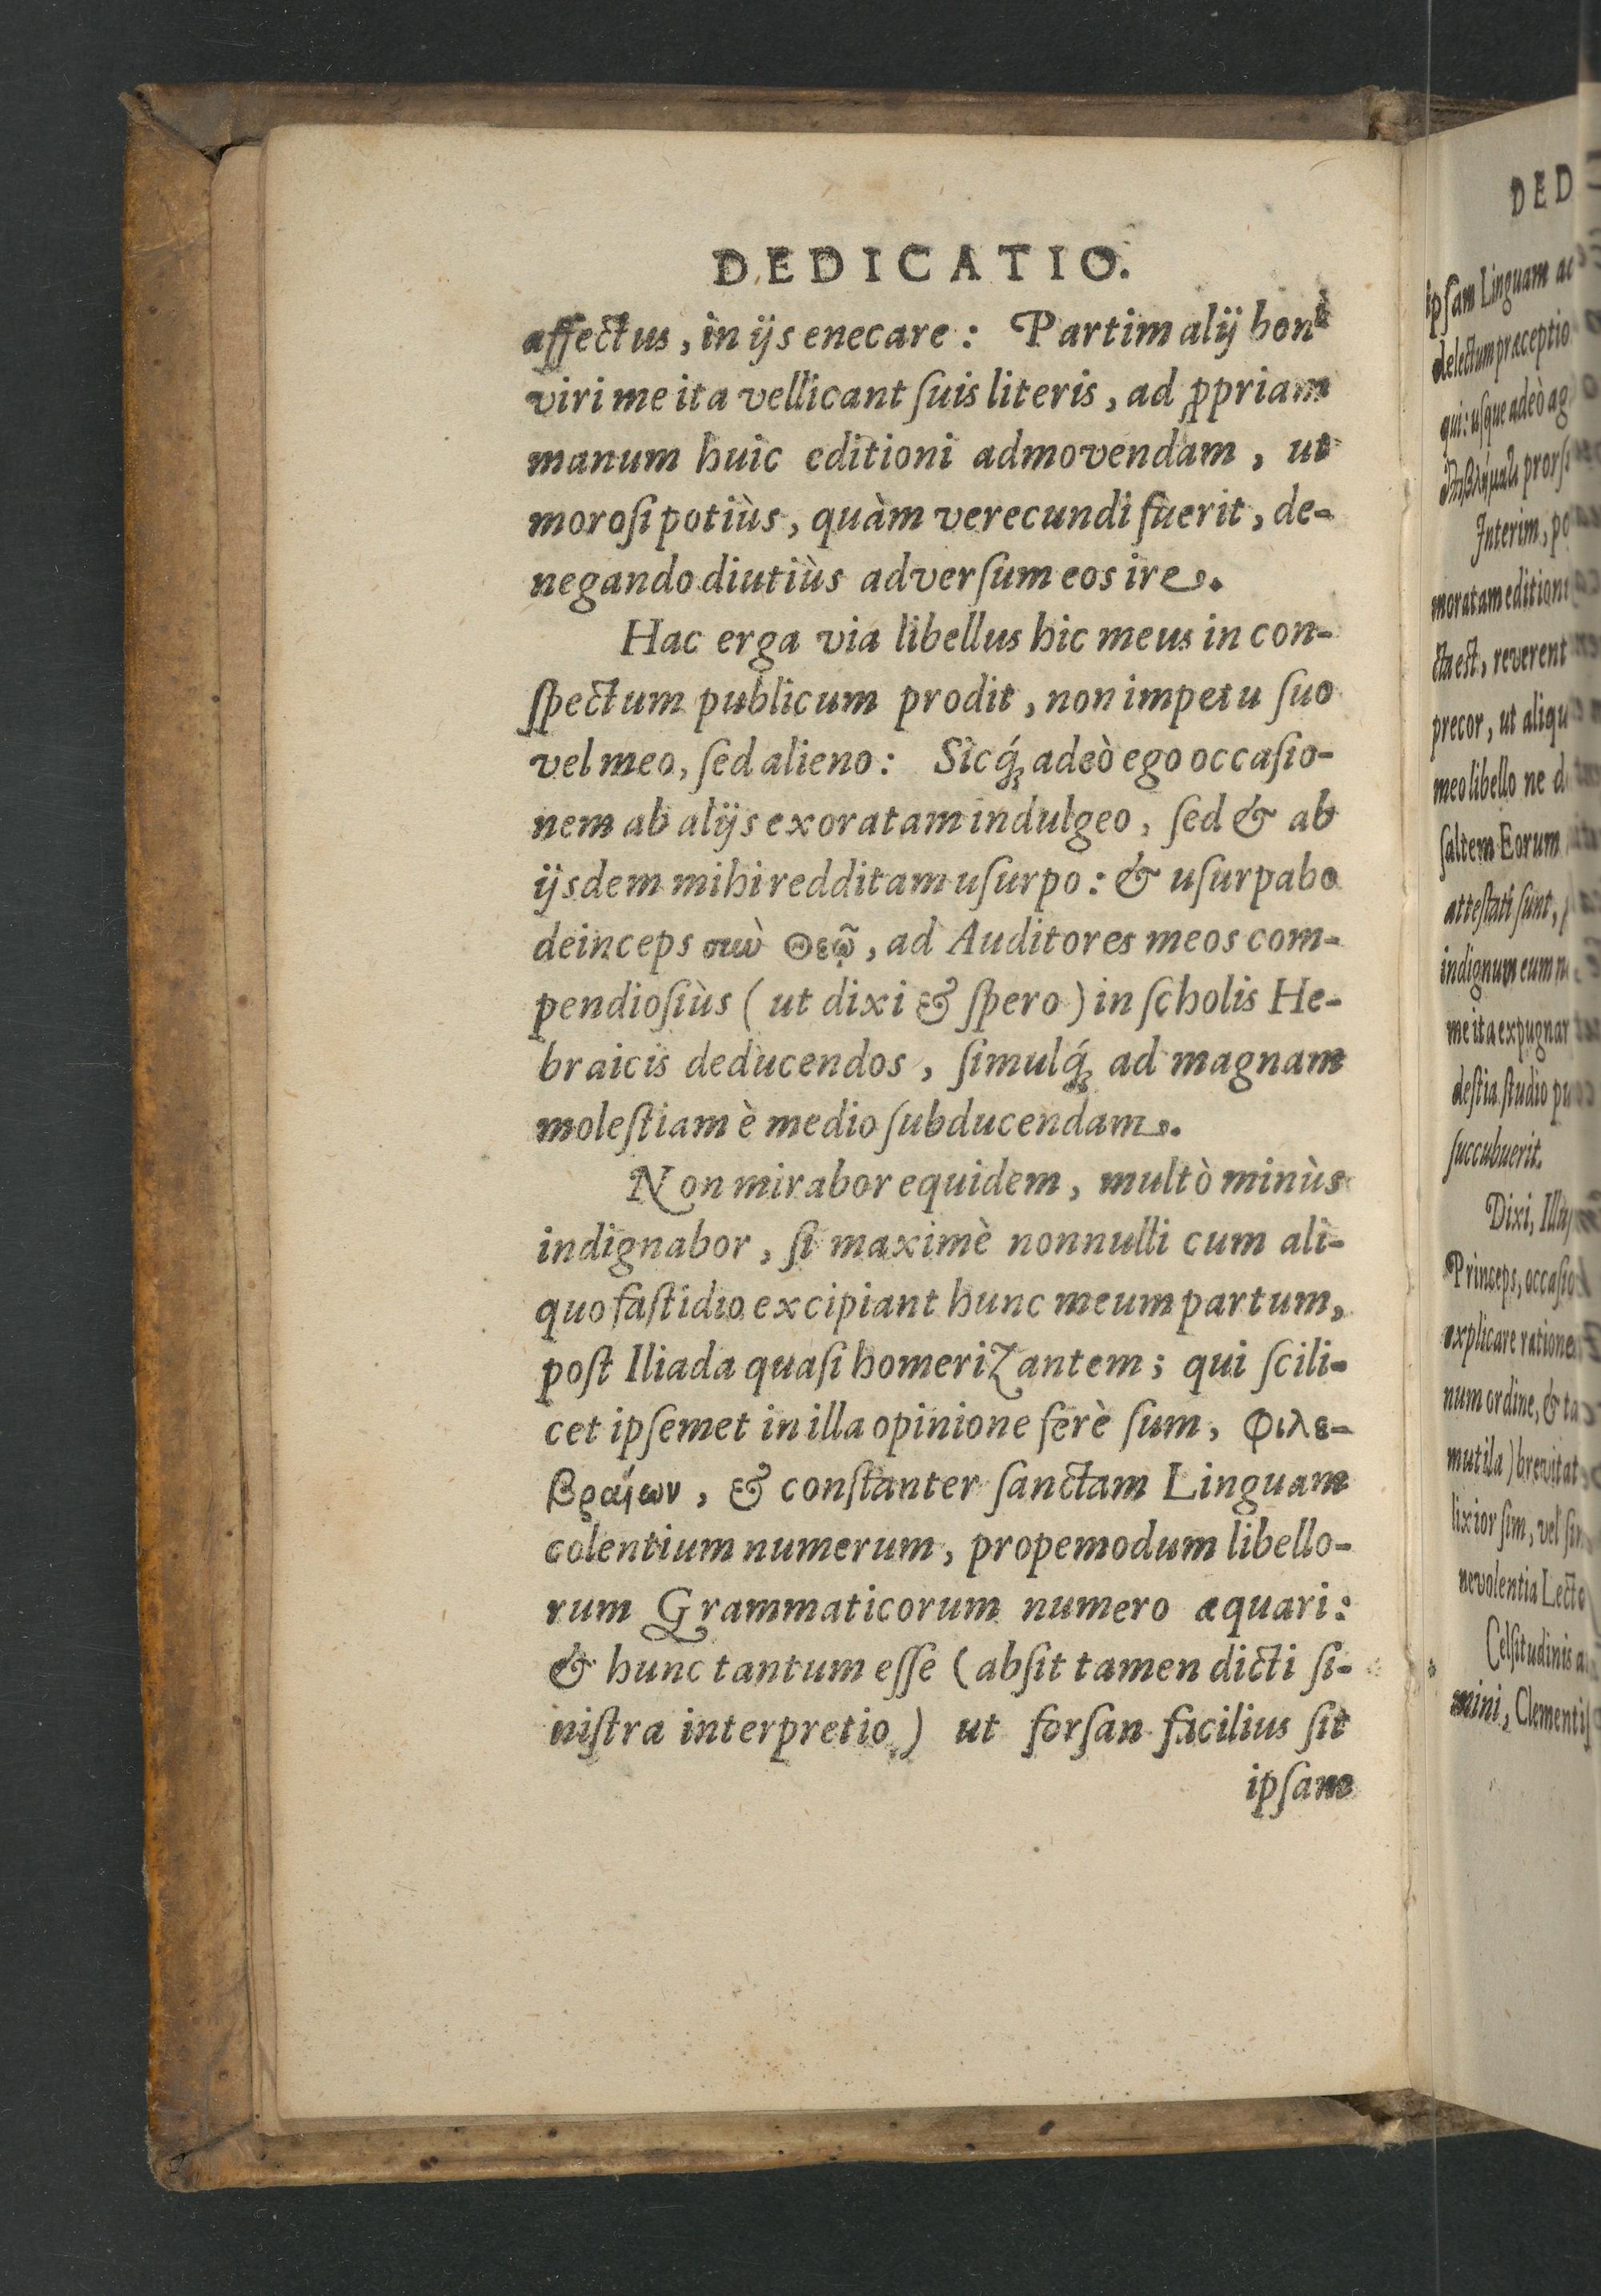 DEDICATIO.
affectus, in ijs enecare: Partim alij boni
viri me ita vellicant ſuis literis, ad ꝓpriam
manum huic editioni admovendam, ut
moroſi potiùs, quàm verecundi fuerit, de-
negando diutiùs adverſum eos ire.
Hac erga via libellus hic meus in con-
ſpectum publicum prodit, non impetu ſuo
vel meo, ſed alieno: Sicq́ꝫ adeò ego occaſio-
nem ab alijs exoratam indulgeo, ſed & ab
ijsdem mihi redditam uſurpo: & uſurpabo
deinceps σιωὺ Θεῷ, ad Auditores meos com-
pendioſiùs (ut dixi & ſpero) in ſcholis He-
braicis deducendos, ſimulq́ꝫ ad magnam
moleſtiam è medio ſubducendam.
Non mirabor equidem, multò minùs
indignabor, ſi maximè nonnulli cum ali-
quo faſtidio excipiant hunc meum partum,
poſt Iliada quaſi homerizantem; qui ſcili-
cet ipſemet in illa opinione ferè ſum, Φιλε-
βραίων, & conſtanter ſanctam Linguam
colentium numerum, propemodum libello-
rum Grammaticorum numero æquari:
& hunc tantum eſſe (abſit tamen dicti ſi-
niſtra interpretio) ut forſan facilius ſit
ipſam
DED
ipſam Linguam
delectum præceptio
qui: uſque adeò ag
prorſ
Interim, po
moratam editioni
cta eſt, reverent
precor, ut aliqu
meo libello ne d
ſaltem Eorum
atteſtati ſunt,
indignum eum n
me ita expugnar
deſtia ſtudio pu
ſuccubuerit.
Dixi, Illuſ
Princeps, occaſio
explicare ratione
num ordine, & ta
mutila) brevitat
lixior ſim, vel ſin
nevolentia Lecto
Celſitudinis a
mini, Clementiſ